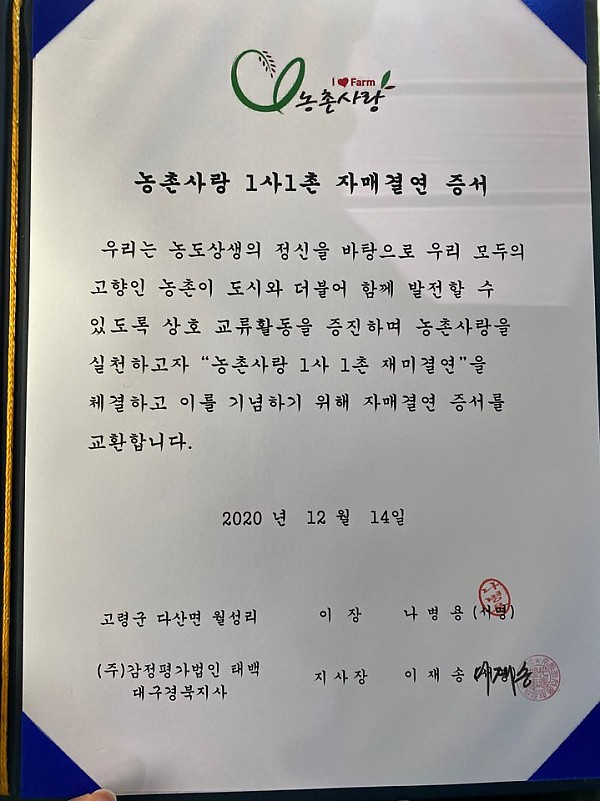 I ❤ Farm
농촌사랑
농촌사랑 1사1촌 자매결연 증서
우리는 농도상생의 정신을 바탕으로 우리 모두의
고향인 농촌이 도시와 더불어 함께 발전할 수
있도록 상호 교류활동을 증진하며 농촌사랑을
실천하고자 “농촌사랑 1사 1촌 재미결연”을
체결하고 이를 기념하기 위해 자매결연 증서를
교환합니다.
2020 년 12 월 14일
고령군 다산면 월성리 이 장 나 병 용 (서명)
(주)감정평가법인 태백 지 사 장 이 재 송
대구경북지사